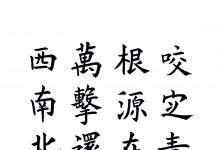 咬㝎青
根源在
萬擊還
西南北